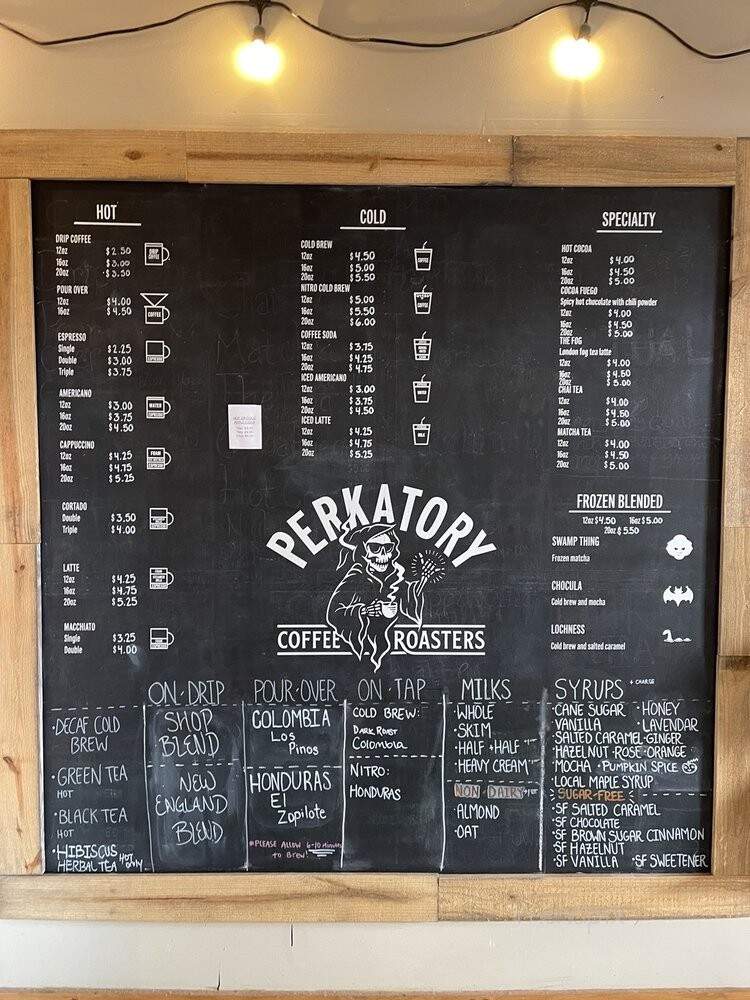 HOT
DRIP COFFEE
12oz $2.50
16oz $3.00
20oz $3.50
DRIP COFFEE
POUR OVER
12oz $4.00
16oz $4.50
COFFEE
ESPRESSO
Single $2.25
Double $3.00
Triple $3.75
ESPRESSO
AMERICANO
12oz $3.00
16oz $3.75
20oz $4.50
WATER
ESPRESSO
CAPPUCCINO
12oz $4.25
16oz $4.75
20oz $5.25
FOAM
ESPRESSO
CORTADO
Double $3.50
Triple $4.00
ESPRESSO
LATTE
12oz $4.25
16oz $4.75
20oz $5.25
ESPRESSO
MACCHIATO
Single $3.25
Double $4.00
FOAM
ESPRESSO
COLD
COLD BREW
12oz $4.50
16oz $5.00
20oz $5.50
COFFEE
NITRO COLD BREW
12oz $5.00
16oz $5.50
20oz $6.00
COFFEE
COFFEE SODA
12oz $3.75
16oz $4.25
20oz $4.75
ICED AMERICANO
12oz $3.00
16oz $3.75
20oz $4.50
WATER
ICED LATTE
12oz $4.25
16oz $4.75
20oz $5.25
MILK
SPECIALTY
HOT COCOA
12oz $4.00
16oz $4.50
20oz $5.00
COCOA FUEGO
Spicy hot chocolate with chili powder
12oz $4.00
16oz $4.50
20oz $5.00
THE FOG
London fog tea latte
12oz $4.00
16oz $4.50
20oz $5.00
CHAI TEA
12oz $4.00
16oz $4.50
20oz $5.00
MATCHA TEA
12oz $4.00
16oz $4.50
20oz $5.00
FROZEN BLENDED
12oz $4.50 16oz $5.00
20oz $5.50
SWAMP THING
Frozen matcha
CHOCULA
Cold brew and mocha
LOCHNESS
Cold brew and salted caramel
PERKATORY
COFFEE ROASTERS
·DECAF COLD
BREW
·GREEN TEA
HOT
·BLACK TEA
HOT
·HIBISCUS
HERBAL TEA HOT ONLY
ON·DRIP
SHOP
BLEND
NEW
ENGLAND
BLEND
POUR·OVER
COLOMBIA
Los
Pinos
HONDURAS
El
Zapilote
*PLEASE ALLOW 6-10 Minutes
to Brew!
ON·TAP
COLD BREW:
DARK ROAST
Colombia
NITRO:
HONDURAS
MILKS
·WHOLE
·SKIM
·HALF & HALF
·HEAVY CREAM
NON·DAIRY
·ALMOND
·OAT
SYRUPS + CHARGE
·CANE SUGAR ·HONEY
·VANILLA ·LAVENDAR
·SALTED CARAMEL·GINGER
·HAZELNUT·ROSE·ORANGE
·MOCHA ·PUMPKIN SPICE
·LOCAL MAPLE SYRUP
SUGAR-FREE
·SF SALTED CARAMEL
·SF CHOCOLATE
·SF BROWN SUGAR CINNAMON
·SF HAZELNUT
·SF VANILLA ·SF SWEETENER